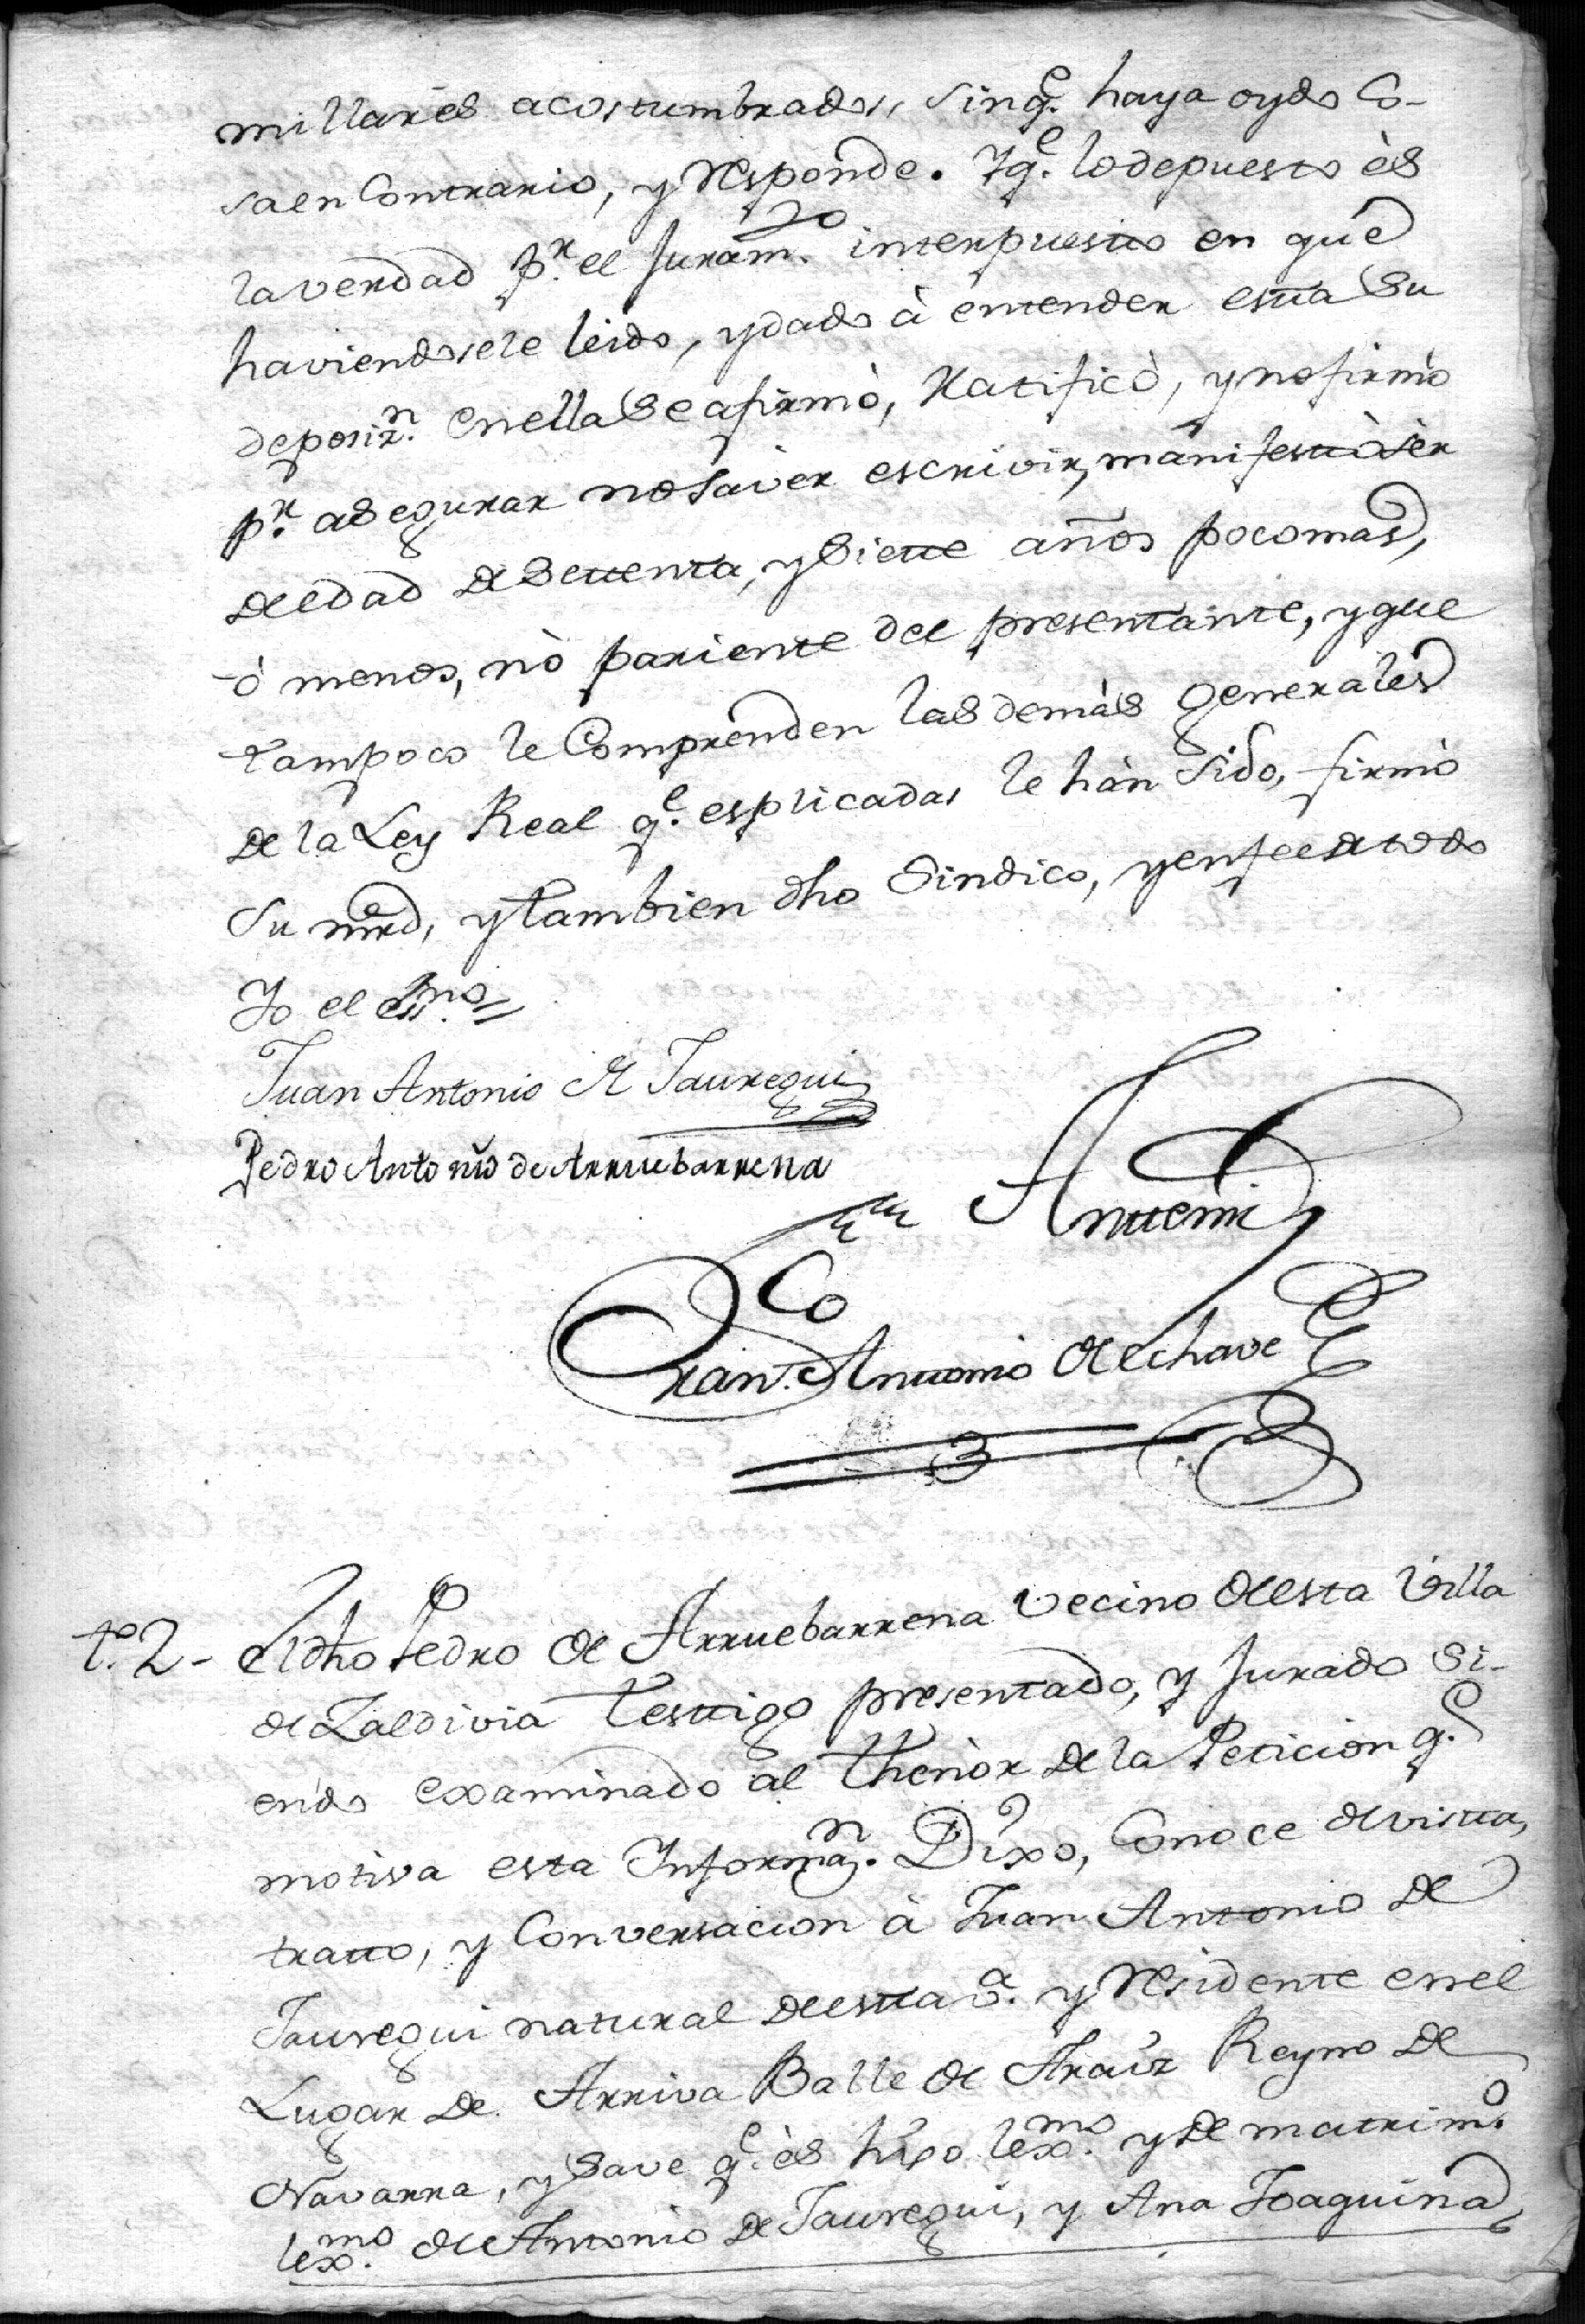 millares acostumbrados, sinq.e haya oydo Co-
sa en Contrario, y responde. Yq.e lo depuesto ès
la verdad p.r el Juram.to interpuesto en que
haviendosele leido, y dado à entender esta Su
deposiz.n en ella Se afirmò, Ratificò, y no firmò
p.r asegurar no Saver escrivir, manifestò sèr
de edad de Settenta, y Siette años poco mas,
ò menos, nò pariente del presentante, y que
tampoco le Comprenden las demàs generales
de la Ley Real q.e esplicadas le hàn Sido, firmò
Su mrd, y tambien dho Sindico, y en fee de todo
Yo el ess.no
Juan Antonio de Jauregui
Pedro Antonio de Arruebarrena
Antemi
Fran.co Antonio de Echave
t.o 2 - El dho Pedro de Arruebarrena vecino de esta Villa
de Zaldivia Testtigo presentado, y Jurado Si-
endo examinado al Thenòr de la Peticion q.e
motiva esta Informaz.n Dixo, Conoce de vistta,
tratto, y Conversacion à Juan Antonio de
Jauregui natural de estta v.a y residente en el
Lugar de Arriva Balle de Araiz Reyno de
Navarra, y Save q.e ès hixo lex.mo y de matrim.o
lex.mo de Antonio de Jauregui, y Ana Joaquina